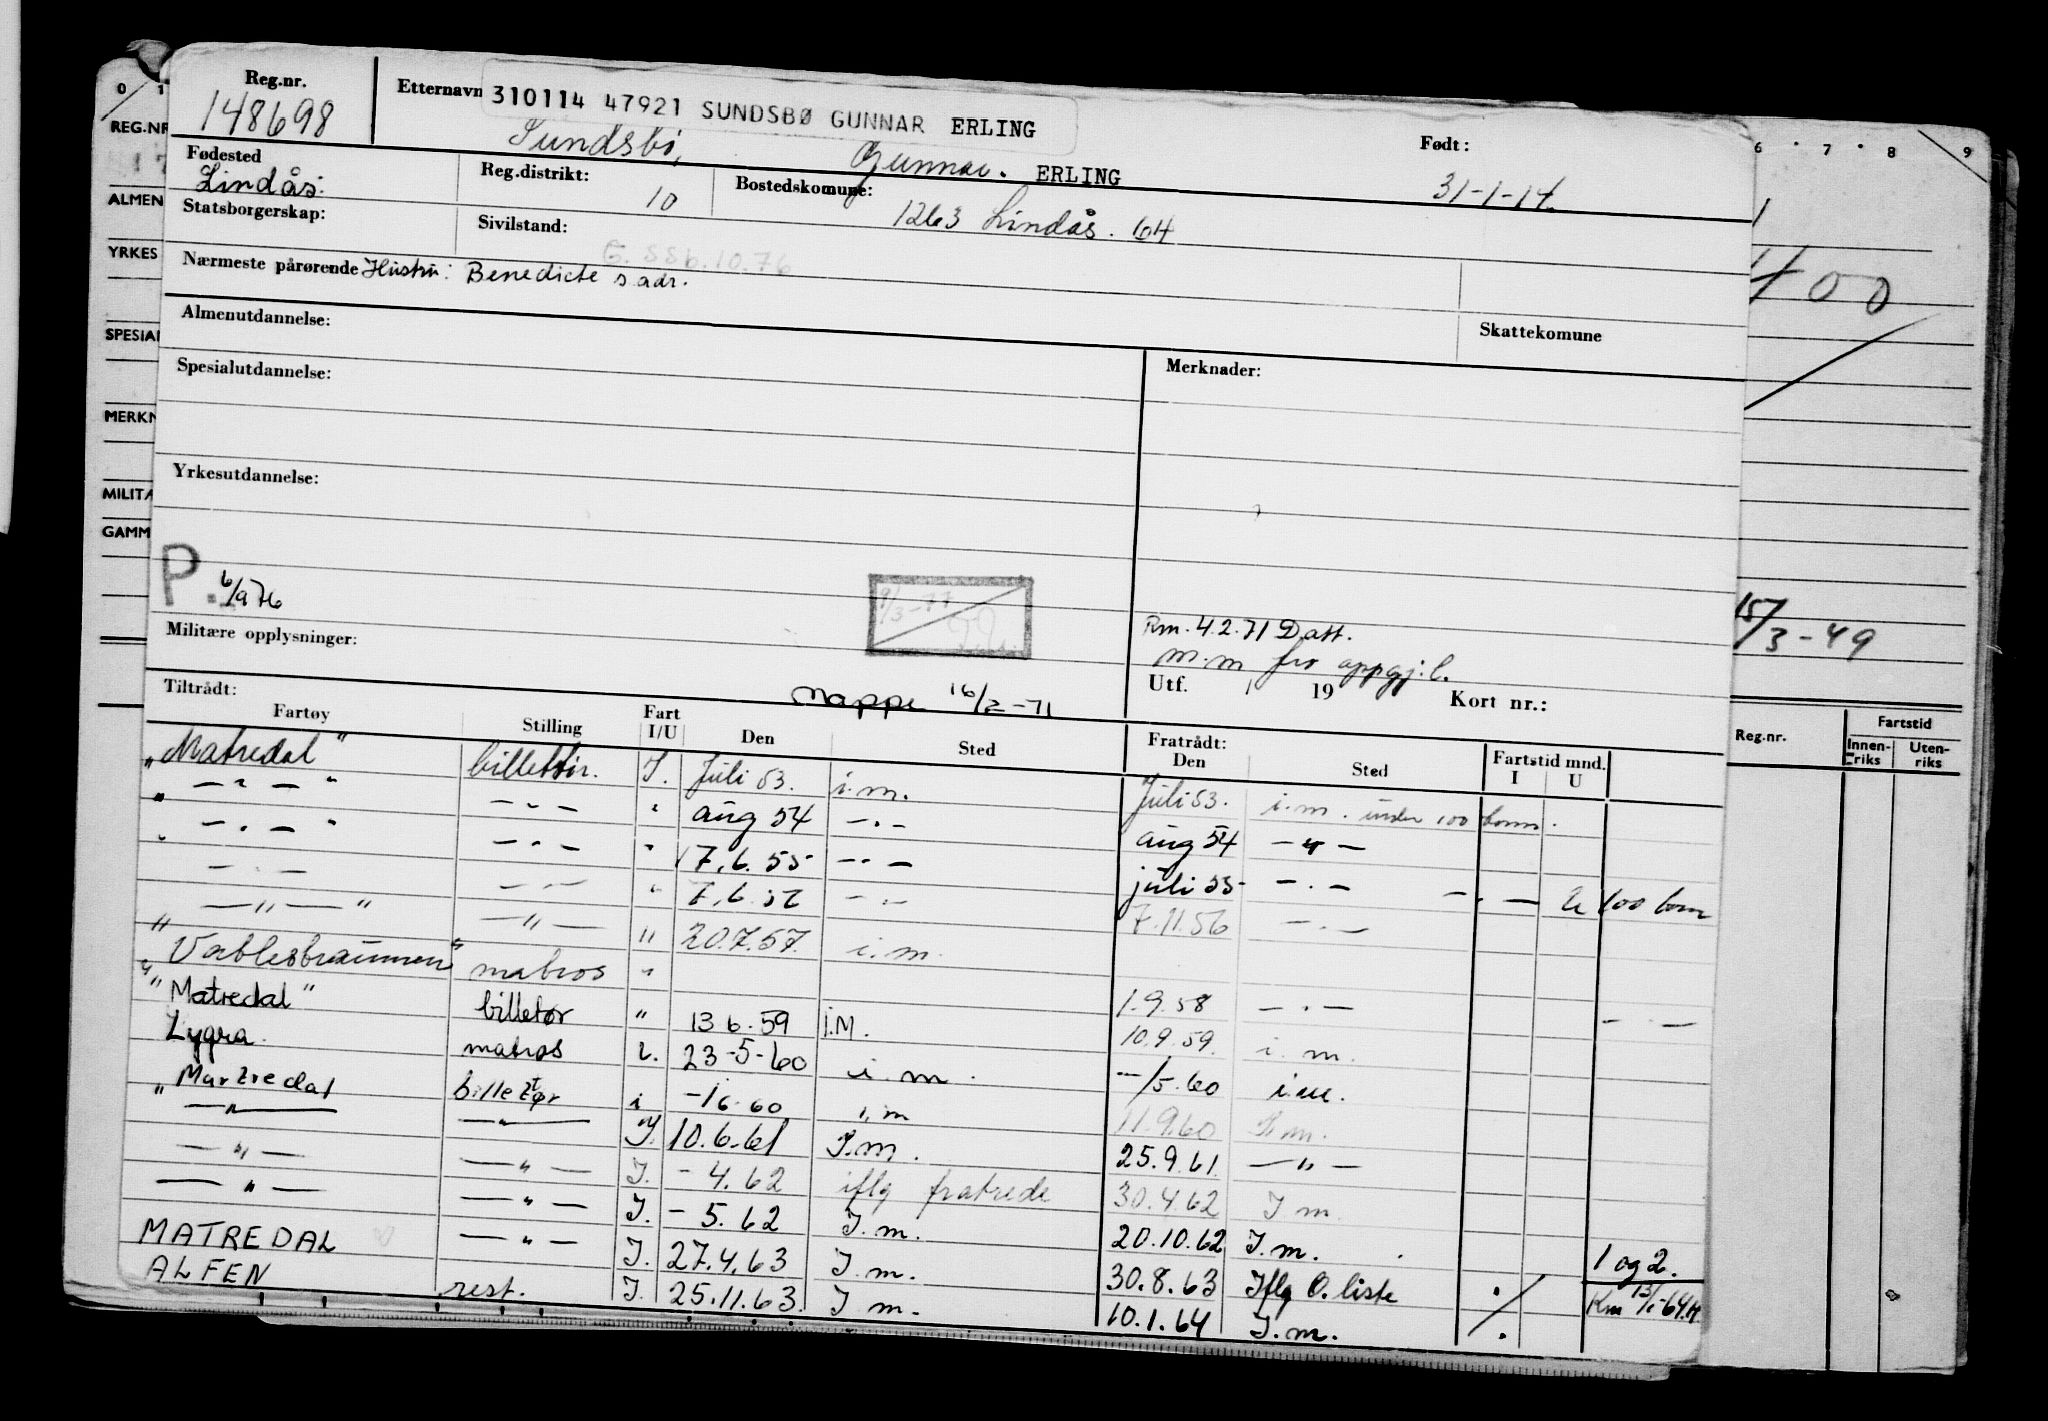 Reg.nr.
148698
Etternavn
310114 47921 SUNDSBØ GUNNAR ERLING
Sundsbø, Gunnar. ERLING
Født:
31-1-14.
Fødested
Lindås.
Reg.distrikt:
10
Bostedskomune:
1263 Lindås. 64
Statsborgerskap:
Sivilstand:
Nærmeste pårørende Hustru: Benedicte s.adr.
Almenutdannelse:
Skattekomune
Spesialutdannelse:
Merknader:
Yrkesutdannelse:
P. 6/9 76
Militære opplysninger:
9/3-77
Rm. 4.2.71 Datt.
m.m for oppgj. l.
Utf. / 19 Kort nr.:
Mappe 16/2-71
Tiltrådt:
Fartøy Stilling Fart I/U Den Sted Fratrådt: Den Sted Fartstid mnd. I U
"Matredal" billettør. I. Juli 53. i.m. Juli 53. i.m. under 100 tonn.
" — " — " — " — " aug 54 — " — aug 54 — " —
" — " — " — " — " 17.6.55 — " — juli 55 — " — — " — u 100 tonn
— " — — " — " 7.6.56 — " — 7.11.56 — " —
" — " — " — " — " 20.7.57. i.m.
" " matros " 1.9.58 — " — — " —
"Matredal" billetør " 13 6.59 I.M. 10.9.59. i.m.
Lygra. matros i. 23-5-60 i.m. —/5.60 i.m.
"Martredal billettør i -/6.60 i.m 11.9.60 I.m.
— " — — " — I. 10.6.61 I.m. 25.9.61. — " —
— " — — " — I. - 4.62 iflg fratrede 30.4.62 I m.
— " — — " — I. - 5.62 I.m. 20.10.62 I.m.
MATREDAL — " — I. 27.4.63 I m. 30.8.63 Iflg O.liste 1 og 2.
ALFEN rest. I. 25.11.63. I m. 10.1.64 I.m. Km 13/1-64.H
0 1
6 7 8 9
REG.NR
ALMEN
YRKES
SPESIAL
MERKN
MILITÆ
GAMM
400
15/3-49
Reg.nr.
Fartstid
Innen-riks
Uten-riks